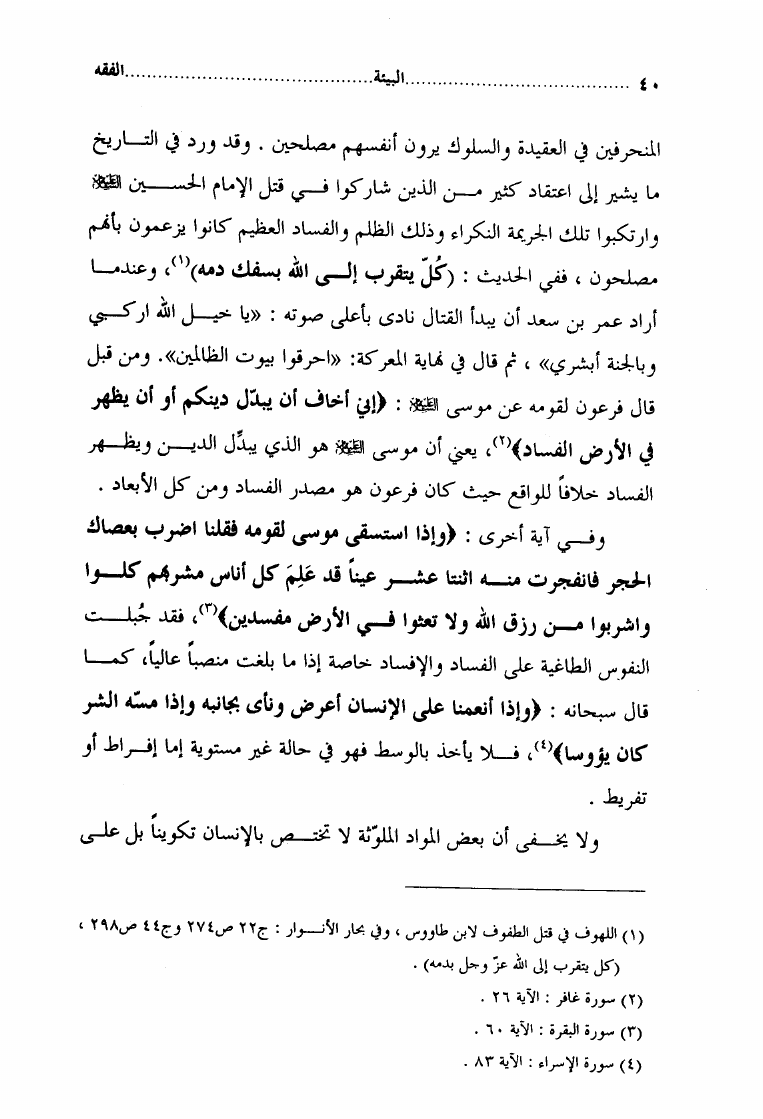 ٤٠ ........................................ البيئة ........................................ الفقه
المنحرفين في العقيدة والسلوك يرون أنفسهم مصلحين . وقد ورد في التاريخ
ما يشير إلى اعتقاد كثير من الذين شاركوا في قتل الإمام الحسين (عليه السلام)
وارتكبوا تلك الجريمة النكراء وذلك الظلم والفساد العظيم كانوا يزعمون بأنهم
مصلحون ، ففي الحديث : (كُلّ يتقرب إلى الله بسفك دمه)(١)، وعندما
أراد عمر بن سعد أن يبدأ القتال نادى بأعلى صوته : «يا خيل الله اركبي
وبالجنة أبشري» ، ثم قال في نهاية المعركة: «احرقوا بيوت الظالمين». ومن قبل
قال فرعون لقومه عن موسى (عليه السلام) : ﴿إني أخاف أن يبدّل دينكم أو أن يظهر
في الأرض الفساد﴾(٢)، يعني أن موسى (عليه السلام) هو الذي يبدِّل الدين ويظهر
الفساد خلافاً للواقع حيث كان فرعون هو مصدر الفساد ومن كل الأبعاد .
وفي آية أخرى : ﴿وإذا استسقى موسى لقومه فقلنا اضرب بعصاك
الحجر فانفجرت منه اثنتا عشر عيناً قد عَلِمَ كل أناس مشربهم كلوا
واشربوا من رزق الله ولا تعثوا في الأرض مفسدين﴾(٣)، فقد جُبلت
النفوس الطاغية على الفساد والإفساد خاصة إذا ما بلغت منصباً عالياً، كما
قال سبحانه : ﴿وإذا أنعمنا على الإنسان أعرض ونأى بجانبه وإذا مسّه الشر
كان يؤوسا﴾(٤)، فلا يأخذ بالوسط فهو في حالة غير مستوية إما إفراط أو
تفريط .
ولا يخفى أن بعض المواد الملوّثة لا تختص بالإنسان تكويناً بل على
(١) اللهوف في قتل الطفوف لابن طاووس ، وفي بحار الأنوار : ج٢٢ ص٢٧٤ وج٤٤ ص٢٩٨ ،
(كل يتقرب إلى الله عزّ وجل بدمه) .
(٢) سورة غافر : الآية ٢٦ .
(٣) سورة البقرة : الآية ٦٠ .
(٤) سورة الإسراء : الآية ٨٣ .